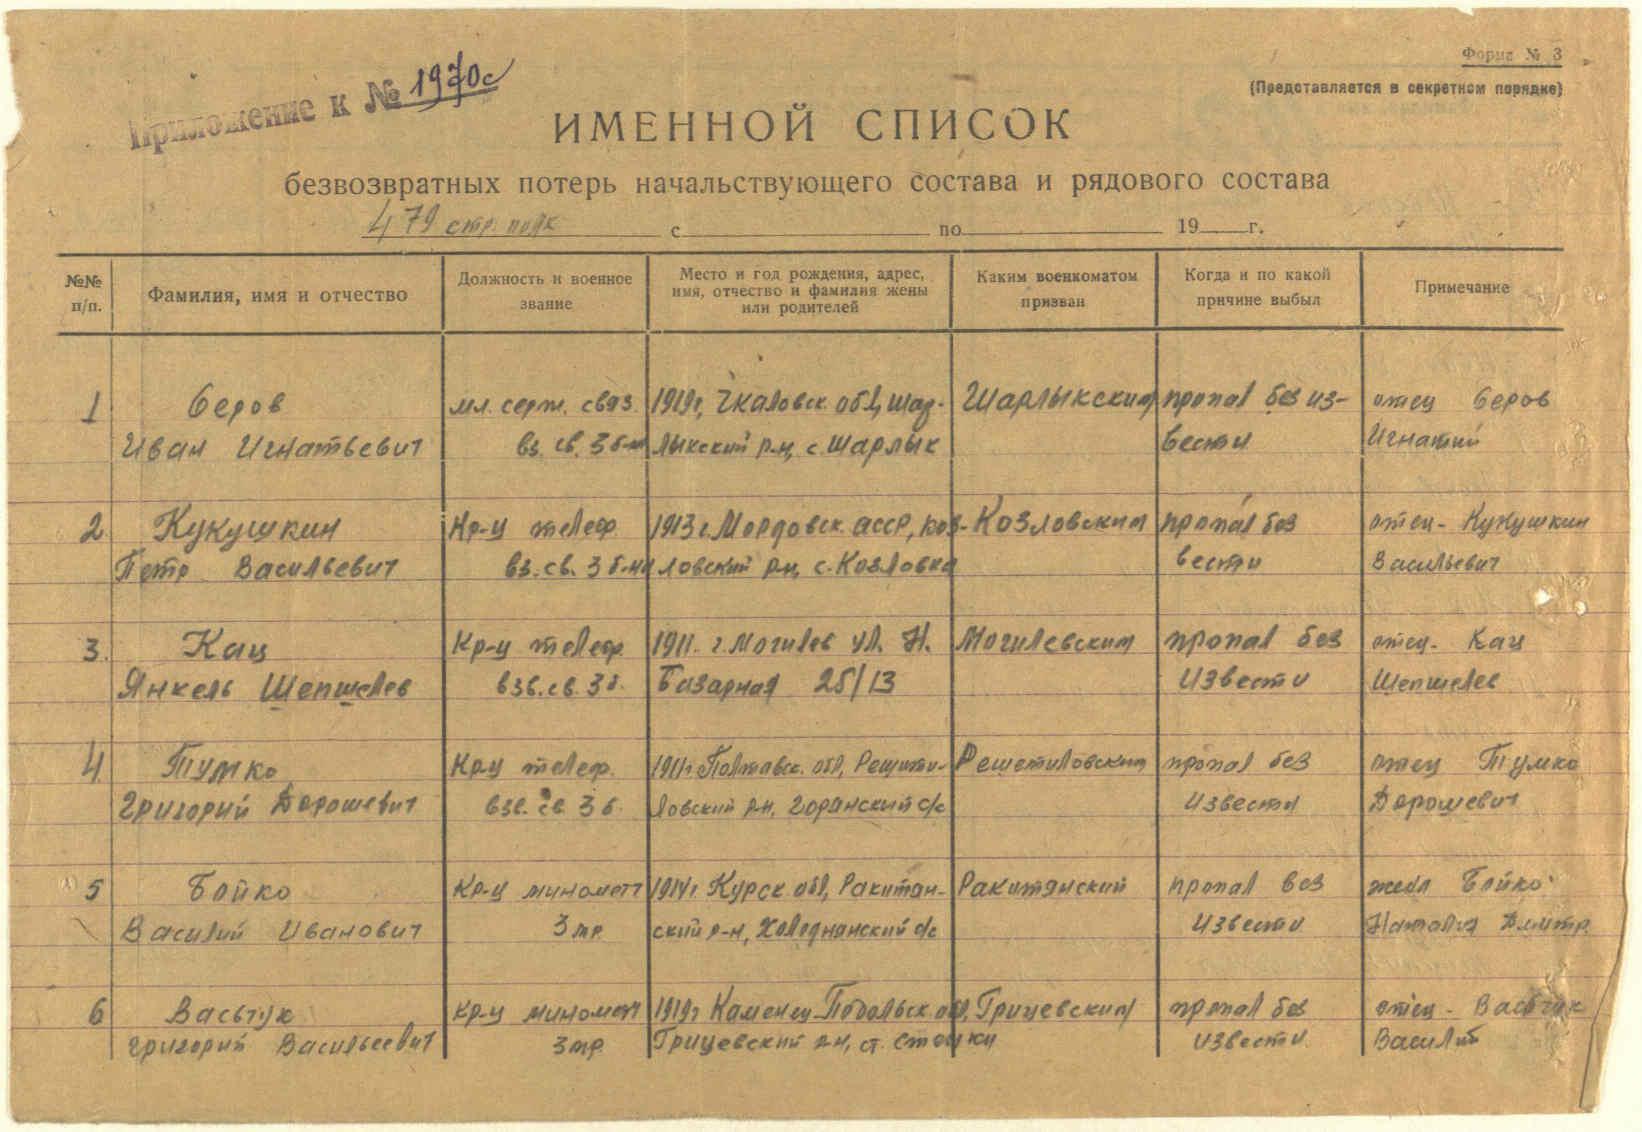 Форма № 3
(Представляется в секретном порядке)
Приложение к № 1970с
ИМЕННОЙ СПИСОК
безвозвратных потерь начальствующего состава и рядового состава
479 стр. полк с по 19 г.
№№ п/п. Фамилия, имя и отчество Должность и военное звание Место и год рождения, адрес, имя, отчество и фамилия жены или родителей Каким военкоматом призван Когда и по какой причине выбыл Примечание
1 Серов мл. серж. связ. 1919г, Чкаловск. обл, Шар- Шарлыкским пропал без из- отец Серов
Иван Игнатьевич вз. св. 3 б-на лыкский р-н, с. Шарлык вести Игнатий
2 Кукушкин Кр-ц телеф. 1913 г. Мордовск. АССР, Коз- Козловским пропал без отец - Кукушкин
Петр Васильевич вз. св. 3 б-на ловский р-н, с. Козловка вести Васильевич
3. Кац Кр-ц телеф. 1911. г. Могилев ул. Н. Могилевским пропал без отец - Кац
Янкель Шепшелев взв. св. 3 б. Базарная 25/13 извести Шепшелев
4 Тумко Кр-ц телеф. 1911г Полтавск. обл, Решити- Решетиловским пропал без отец Тумко
Григорий Дорошевич взв. св. 3 б. ловский р-н, Горанский с/с извести Дорошевич
5 Бойко Кр-ц миномет 1914г. Курск. обл, Ракитян- Ракитянский пропал без жена Бойко
Василий Иванович 3 мр. ский р-н, Холоднянский с/с извести Наталия Дмитр.
6 Васьтук Кр-ц миномет 1919г Каменец-Подольск. обл, Грицевским пропал без отец - Васьтук
Григорий Васильевич 3 мр. Грицевский р-н, ст. Стоики извести Васил